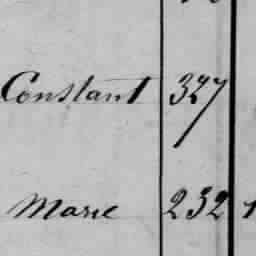 Constant 327
Marie 232